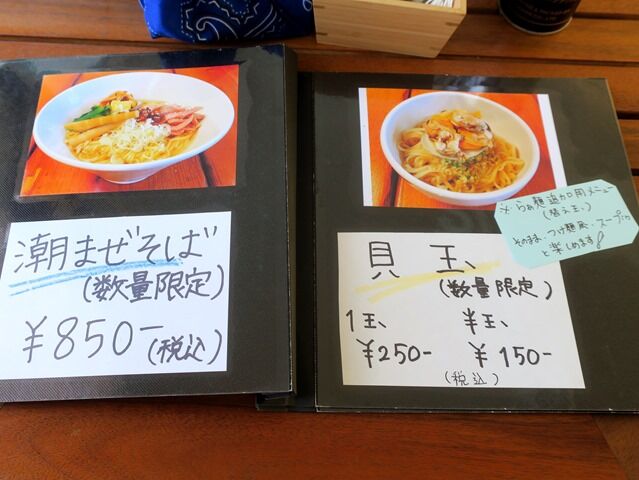 潮まぜそば
(数量限定)
¥850-(税込)
貝玉、
(数量限定)
1玉、 半玉、
¥250- ¥150-
(税込)
※らぁ麺追加用メニュー
(替え玉、)
そのまま、つけ麺風、スープIN
と楽しめます!